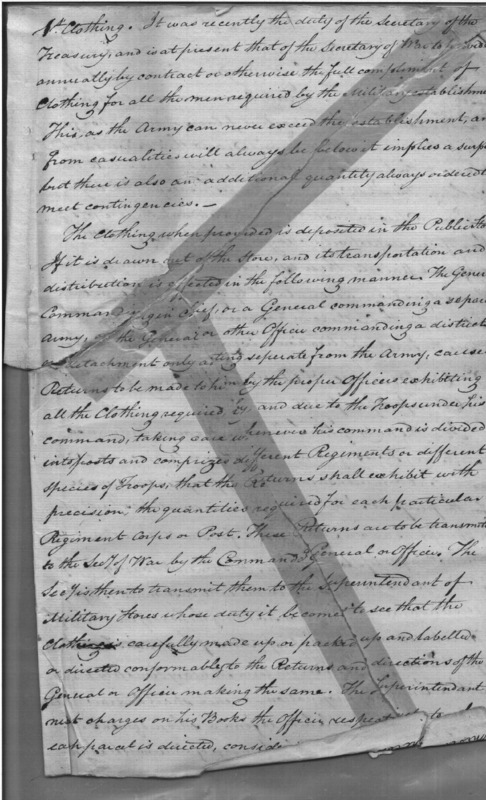 Clothing. It was recently the duty of the Secretary of the
Treasury, and is at present that of the Secretary of War to
annually by contract or otherwise the full compliment of
Clothing for all the men required by the Military establishme
This, as the Army can never exceed the establishment, an
from casualities will always be below it implies a surp
but there is also an additional quantity always ordered t
meet contingencies. —
The Clothing when provided is deposited in the Public Sto
If it is drawn out of the Store, and its transportation and
distribution is effected in the following manner. The Gene
Commanding in Chief, or a General commanding a sepera
Army, or the General or other Officer commanding a district
or detachment only acting seperate from the Army, cause
Returns to be made to him by the proper Officers exhibiting
all the Clothing required by, and due to the Troops under his
command, taking care whenever his command is divided
into posts and comprizes different Regiments or different
species of Troops, that the Returns shall exhibit with
precision, the quantities required for each particular
Regiment Corps or Post. These Returns are to be transmit
to the Secy of War by the Commandg General or Officer. The
Secy is then to transmit them to the Superintendant of
Military Stores whose duty it becomes to see that the
Clothing is carefully made up or packed up and labelled
or directed conformably to the Returns and directions of the
General or Officer making the same. The Superintendant
must charge on his Books the Officer respecti to
each parcel is directed, conside